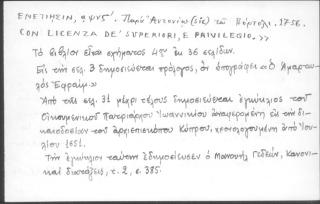 ΕΝΕΤΙΗΣΙΝ, αψνς΄. Παρὰ Ἀντωνίῳ (sic) τῷ Βόρτολι. 1756.
CON LICENZA DE' SUPERIORI, E PRIVILEGIO. >>
Τὸ βιβλίον εἶναι σχήματος 4ου ἐκ 36 σελίδων.
Εἰς τὴν σελ. 3 δημοσιεύεται πρόλογος, ὃν ὑπογράφει «Ὁ Ἁμαρτω-
λὸς Ἐφραίμ.»
Ἀπὸ τῆς σελ. 31 μέχρι τέλους δημοσιεύεται ἐγκύκλιος τοῦ
Οἰκουμενικοῦ Πατριάρχου Ἰωαννικίου ἀναφερομένη εἰς τὴν δι-
καιοδοσίαν τοῦ ἀρχιεπισκόπου Κύπρου, χρονολογουμένη ἀπὸ Ἰου-
λίου 1651.
Τὴν ἐγκύκλιον ταύτην ἐδημοσίευσεν ὁ Μανουὴλ Γεδεών, Κανονι-
καὶ διατάξεις, τ. 2, σ. 385.